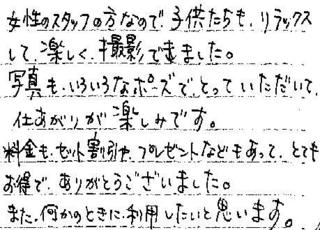 女性のスタッフの方なので、子供たちも、リラックス
して、楽しく、撮影できました。
写真も、いろいろなポーズで、とっていただいて、
仕あがりが楽しみです。
料金も、セット割引や、プレゼントなどもあって、とても
お得で、ありがとうございました。
また、何かのときに、利用したいと思います。